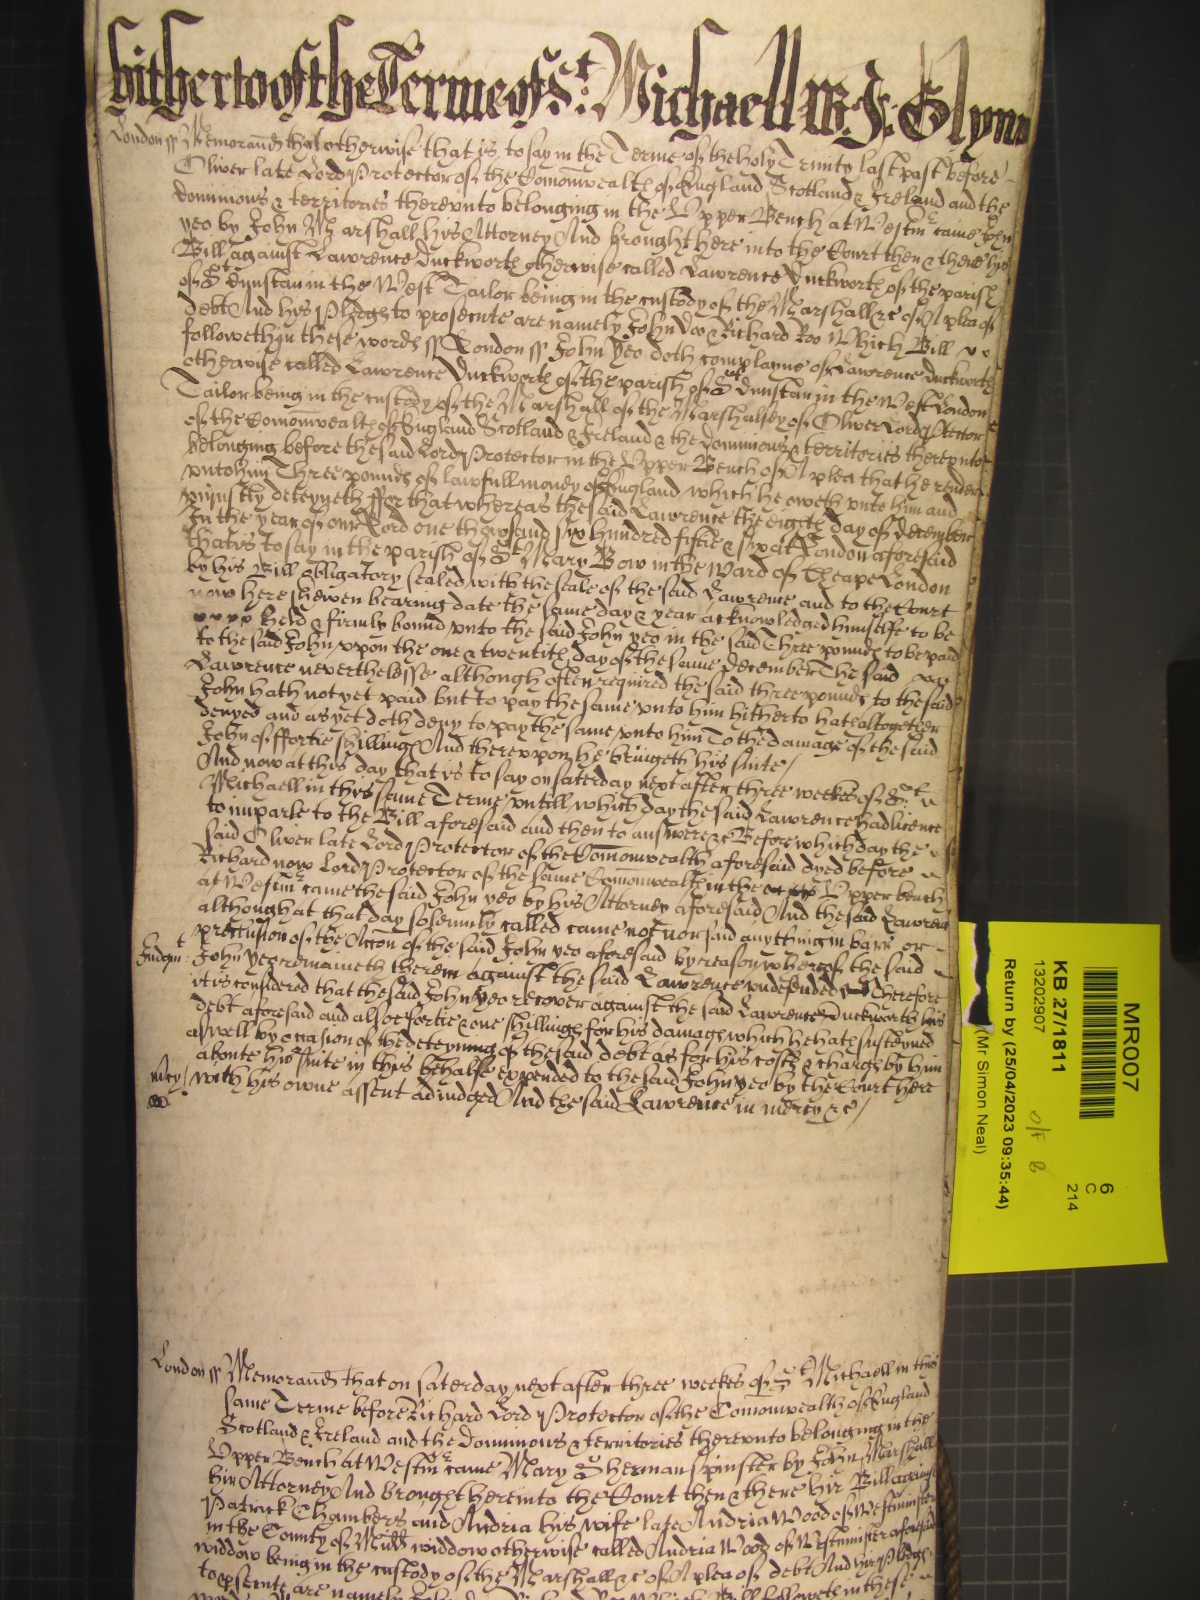 hitherto of the Terme of St: Michaell W. J: Glynn
London ss Memorand that otherwise that is to say in the Terme of the holy Trinity last past before
Oliver late Lord Protector of the Comonwealth of England Scotland & Ireland and the
dominions & territories thereunto belonging in the Upper Bench at Westmr came John
yeo by John Marshall his Attorney And brought here into the Court then & there his
Bill against Lawrence Duckworth otherwise called Lawrence Duckworth of the parish
of St Dunstan in the West Tailor being in the custody of the Marshall &c of A plea of
debt And his Pledges to prosecute are namely John Doo & Richard Roo Which Bill
followeth in these words ss London ss John Yeo doth complayne of Lawrence Duckworth
otherwise called Lawrence Duckworth of the parish of St Dunstan in the West London
Tailor being in the custody of the Marshall of the Marshalsey of Oliver Lord Ptector
of the Comonwealth of England Scotland & Ireland & the dominions & territories thereunto
belonging before the said Lord Protector in the Upper Bench of A plea that he render
unto him Three pounds of lawfull money of England which he oweth unto him and
uniustly deteyneth ffor that whereas the said Lawrence the eigth day of December
In the year of our Lord one thousand six hundred fiftie & six at London aforesaid
that is to say in the parish of St Mary Bow in the ward of Cheape London
by his Bill obligatory sealed with the seale of the said Lawrence and to the Court
now here shewen bearing date the same day & year acknowledged himselfe to be
held & firmly bound unto the said John yeo in the said Three pounds to be paid
to the said John upon the one & twentith day of the same December The said
Lawrence neverthelesse although often required the said three pounds to the said
John hath not yet paid but to pay the same unto him hitherto hath altogether
denyed and as yet doth deny to pay the same unto him To the damage of the said
John of ffortie shillings And thereupon he bringeth his suite /
And now at this day that is to say on saterday next after three weekes of St
Michaell in this same Terme untill which day the said Lawrence had licence
to imparle to the Bill aforesaid and then to answere &c Before which day the
said Oliver late Lord Protector of the Comonwealth aforesaid dyed before
Richard now Lord Protector of the same Comonwealth in the Upper bench
at Westmr came the said John yeo by his Attorney aforesaid And the said Lawrence
although at that day solemnly called came not nor said anything in barr or
preclusion of the Accon of the said John yeo aforesaid by reason whereof the said
Judgmt John yeo remaineth therein against the said Lawrence undefended Therefore
it is considered that the said John Yeo recover against the said Lawrence Duckworth his
debt aforesaid and alsoe fortie & one shillings for his damages which he hath susteyned
aswell by occasion of the deteyning of the said debt as for his costs & charges by him
aboute his suite in this behalfe expended to the said John yeo by the Court here
mcy / with his owne assent adiudged And the said Lawrence in mercy &c /
London ss Memorand that on saterday next after three weekes of St Michaell in this
same Terme before Richard Lord Protector of the Comonwealth of England
Scotland & Ireland and the Dominions & territories thereunto belonging in the
Upper Bench at Westmr came Mary Sherman Spinster by John Marshall
hir Attorney And brought here into the Court then & there hir Bill against
Patrick Chambers and Audria his wife late Audria Wood of Westminster
in the County of Midd widdow otherwise called Audria Wood of Westminster aforesaid
widdow being in the custody of the Marshall &c of A plea of debt And hir Pledges
to psecute are namely Which Bill followeth in these
MR007
6
C
214
KB 27/1811
13202907
O/F B
Return by (25/04/2023 09:35:44)
(Mr Simon Neal)